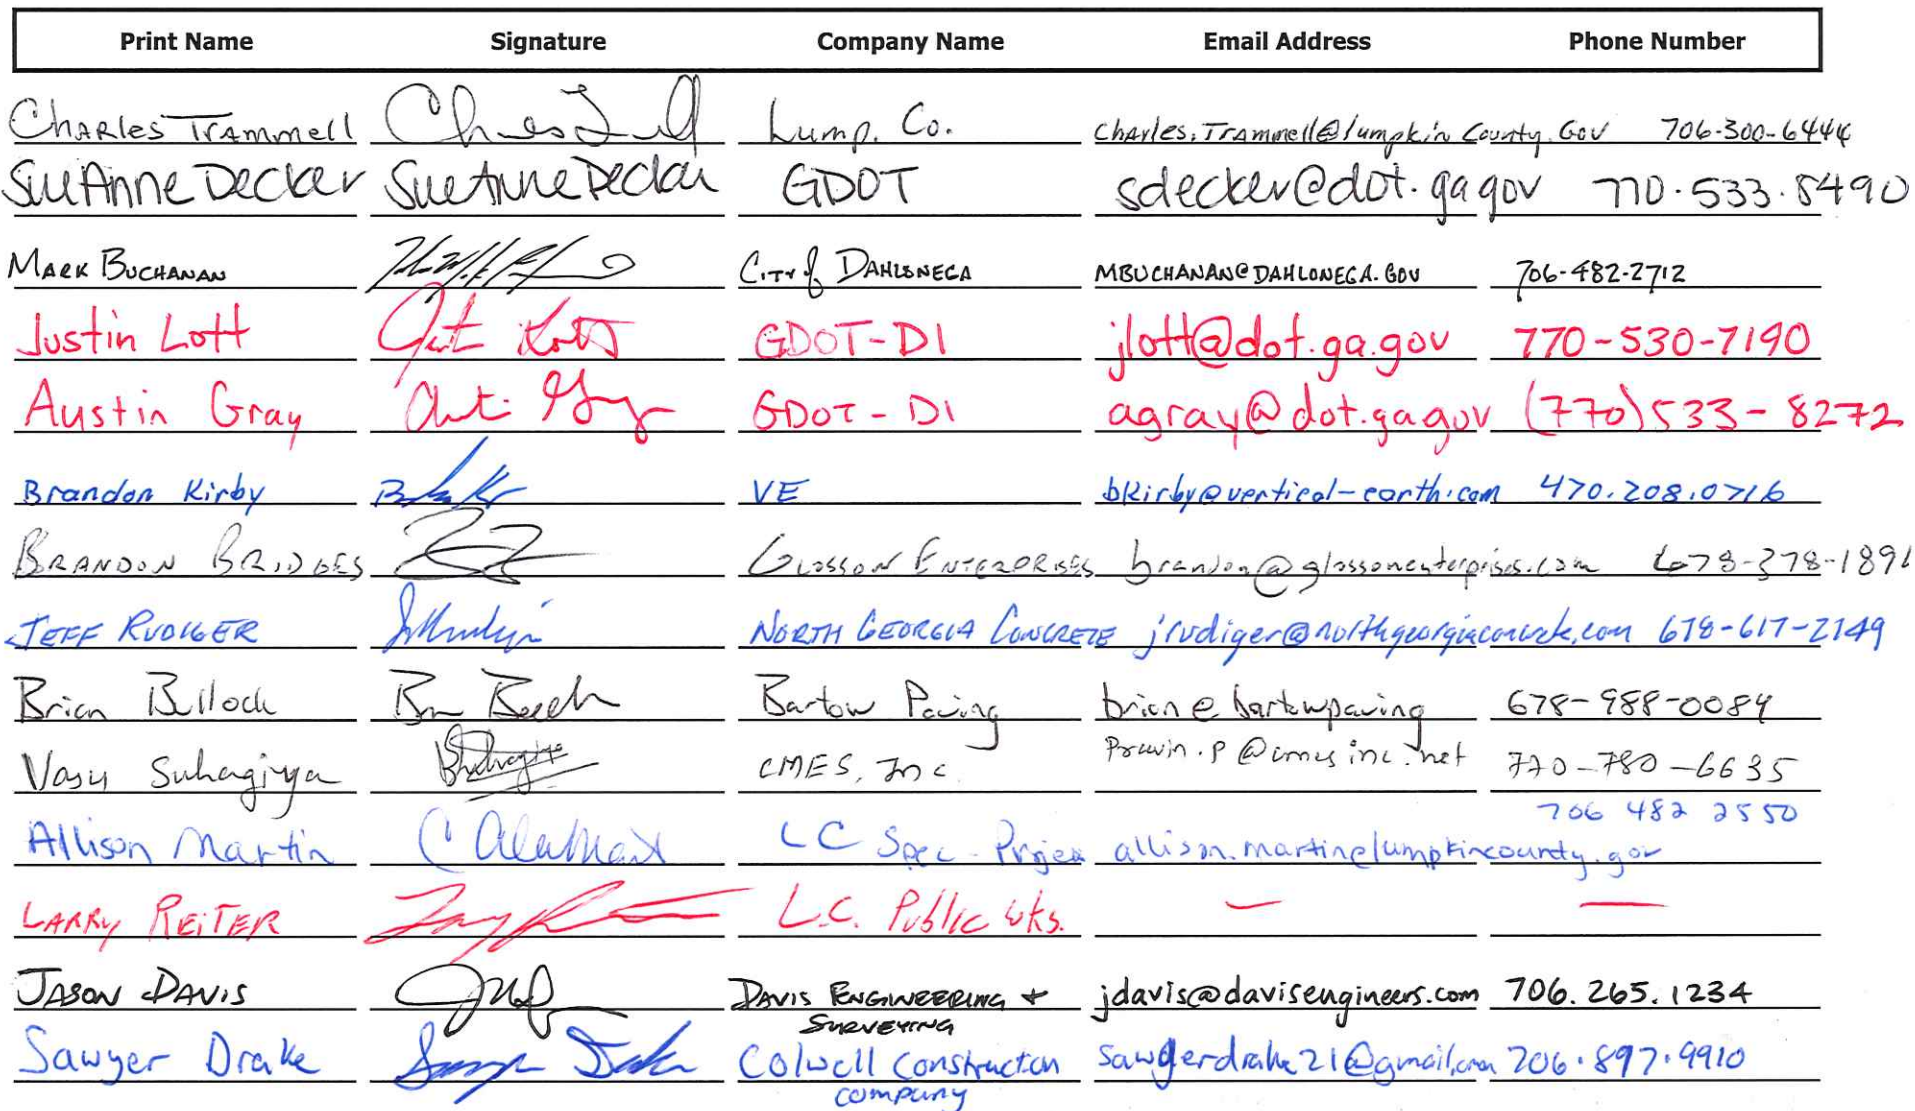 Print Name Signature Company Name Email Address Phone Number
CHARles TRAmmell Lump. Co. Charles.Trammell@lumpkin County.Gov 706-300-6444
SueAnne Decker SueAnne Decker GDOT sdecker@dot.ga gov 770.533.8490
MARK BUCHANAN CITY of DAHLONEGA MBUCHANAN@DAHLONEGA.GOV 706-482-2712
Justin Lott GDOT-D1 jlott@dot.ga.gov 770-530-7190
Austin Gray GDOT-D1 agray@dot.ga gov (770)533-8272
Brandon Kirby VE bkirby@vertical-earth.com 470.208.0716
BRANDON BRIDGES GLOSSON ENTERPRISES brandon@glossonenterprises.com 678-378-1891
JEFF RUDIGER NORTH GEORGIA CONCRETE jrudiger@northgeorgiaconcrete.com 678-617-2149
Brian Bullock Bartow Paving brian@bartowpaving 678-988-0084
Vasu Suhagiya CMES, Inc. Pravin.p@cmesinc.net 770-780-6635
706 482 2550
Allison Martin LC Spec. Projec allison.martin@lumpkincounty.gov
LARRY REITER L.C. Public wks. — —
JASON DAVIS DAVIS ENGINEERING + jdavis@davisengineers.com 706.265.1234
SURVEYING
Sawyer Drake Sawyer Drake Colwell Construction sawyerdrake21@gmail.com 706.897.9910
company